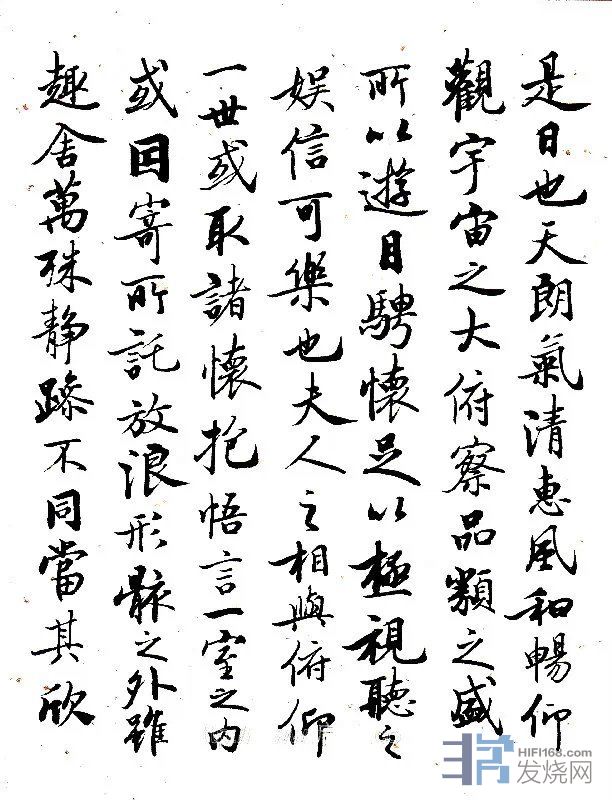 是日也天朗氣清惠風和暢仰
觀宇宙之大俯察品類之盛
所以遊目騁懷足以極視聽之
娱信可樂也夫人之相與俯仰
一世或取諸懷抱悟言一室之内
或因寄所託放浪形骸之外雖
趣舍萬殊静躁不同當其欣
HIFI168.com
发烧网